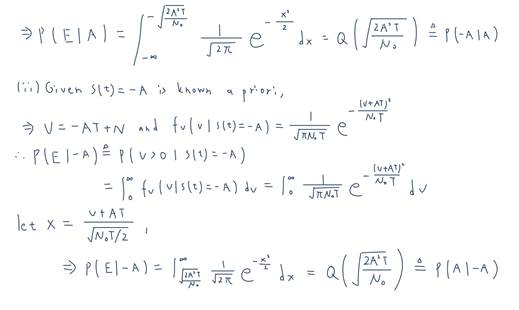 ⇒ P(E|A) = ∫_{-∞}^{-√(2A²T/N₀)} 1/√(2π) e^{-x²/2} dx = Q(√(2A²T/N₀)) ≜ P(-A|A)
(ii) Given s(t)=-A is known a priori,
⇒ V = -AT+N and f_V(v|s(t)=-A) = 1/√(πN₀T) e^{-(v+AT)²/(N₀T)}
∴ P(E|-A) ≜ P(v>0|s(t)=-A)
= ∫_0^∞ f_V(v|s(t)=-A) dv = ∫_0^∞ 1/√(πN₀T) e^{-(v+AT)²/(N₀T)} dv
let x = (v+AT)/√(N₀T/2),
⇒ P(E|-A) = ∫_{√(2A²T/N₀)}^∞ 1/√(2π) e^{-x²/2} dx = Q(√(2A²T/N₀)) ≜ P(A|-A)